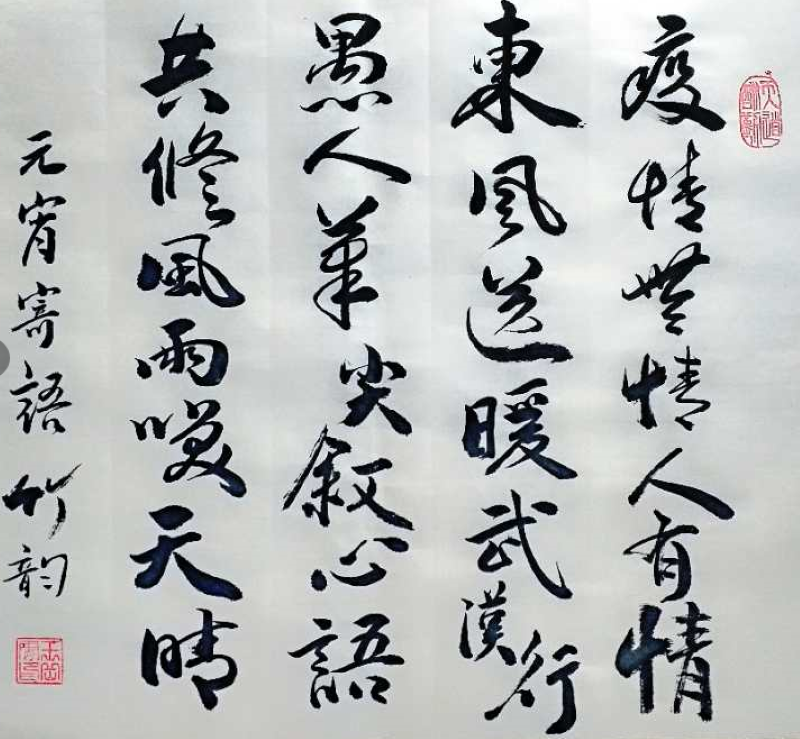 疫情無情人有情
東風送暖武漢行
愚人筆尖敘心語
共修風雨喚天晴
元宵寄語 竹韵